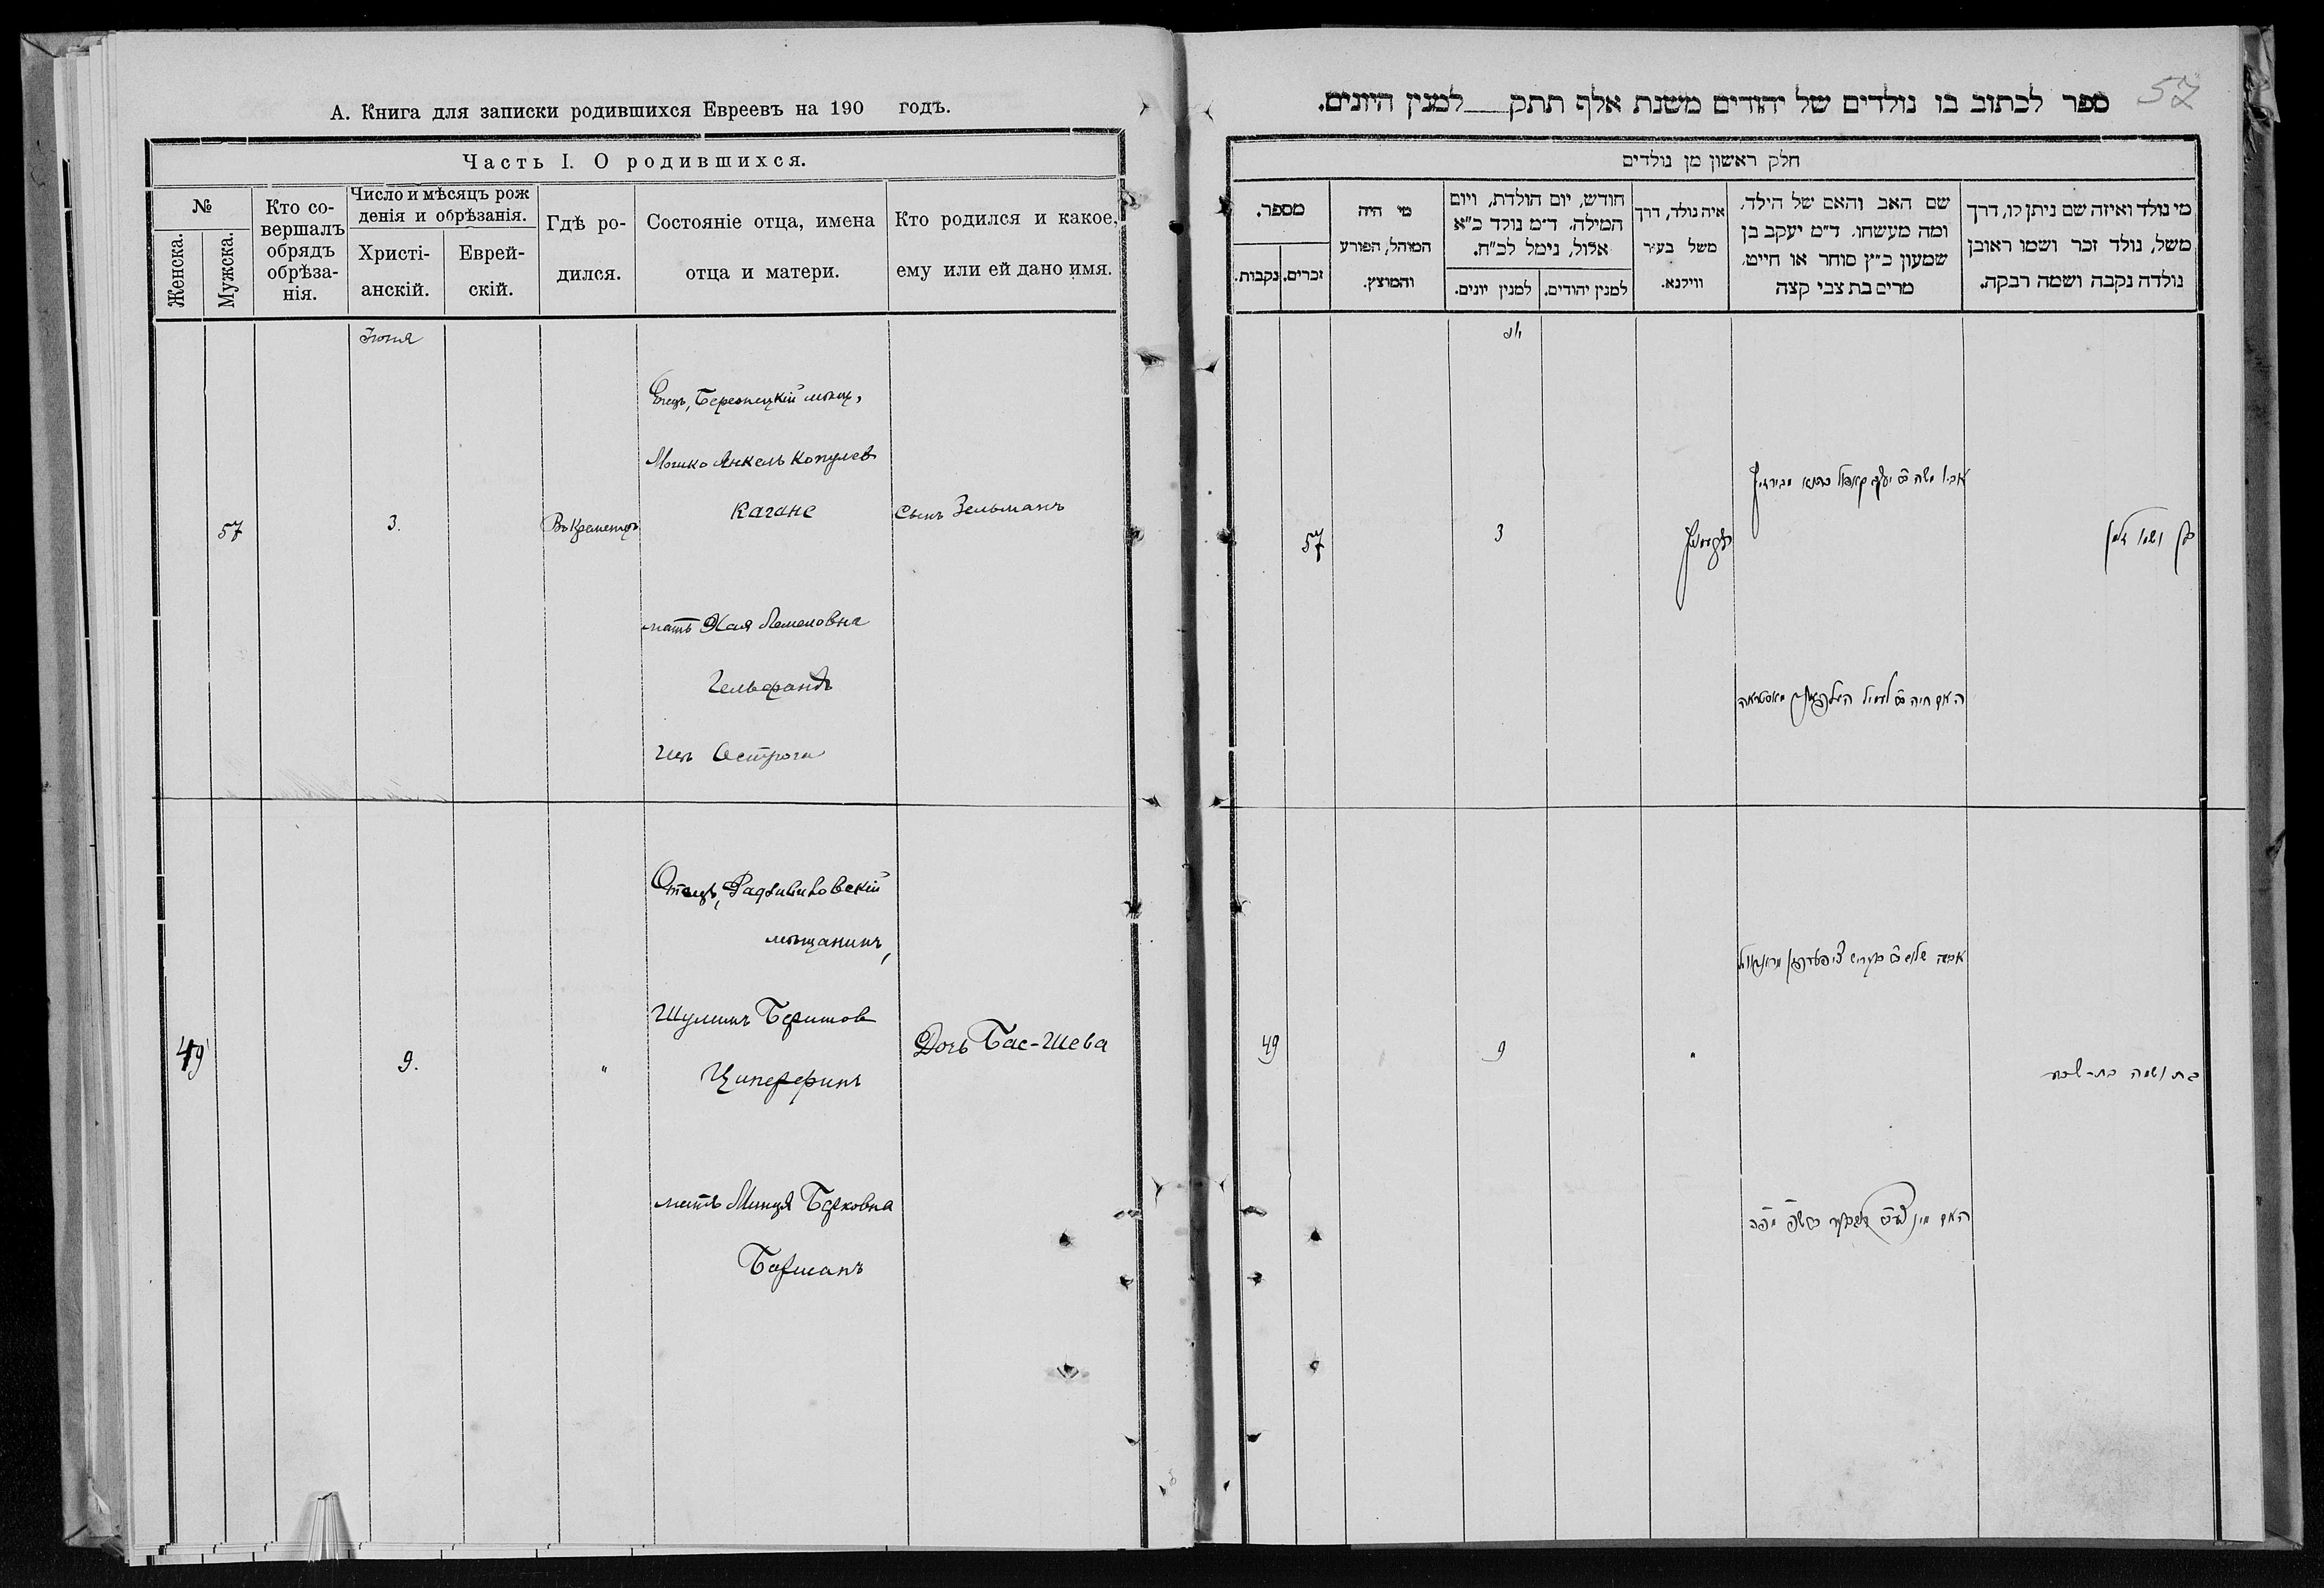 А. Книга для записки родившихся Евреевъ на 190 годъ.
Часть I. О родившихся.
№
Женска.
Мужска.
Кто со-
вершалъ
обрядъ
обрѣза-
нія.
Число и мѣсяцъ рож
денія и обрѣзанія.
Христі-
анскій.
Еврей-
скій.
Гдѣ ро-
дился.
Состояніе отца, имена
отца и матери.
Кто родился и какое,
ему или ей дано имя.
Іюня
57
3.
Въ Кременцѣ
Отецъ, Бережецкій мѣщ,
Мошко Янкель Копулев
Кагане
мать Хая Лемеловна
Гельфандъ
изъ Острога
Сынъ Зельманъ
49
9.
"
Отецъ, Радзивиловскій
мѣщанинъ,
Шулимъ Беришов
Циперфинъ
мать Минця Берковна
Бафманъ
Дочь Бас-Шева
57
ספר לכתוב בו נולדים של יהודים משנת אלף תתק למנין היונים.
חלק ראשון מן נולדים
מספר.
נקבות.
זכרים.
מי היה
המוהל, הפורע
והמוצץ.
חודש, יום הולדת, ויום
המילה, ד״מ נולד כ״א
אלול, נימל לכ״ח.
למנין יונים.
למנין יהודים.
איה נולד, דרך
משל בעיר
ווילנא.
שם האב והאם של הילד,
ומה מעשהו, ד״מ יעקב בן
שמעון כ״ץ סוחר או חייט,
מרים בת צבי קצה
מי נולד ואיזה שם ניתן לו, דרך
משל, נולד זכר ושמו ראובן
נולדה נקבה ושמה רבקה.
57
3
בן ושמו זלמן
49
9
"
בת ושמה בת-שבע